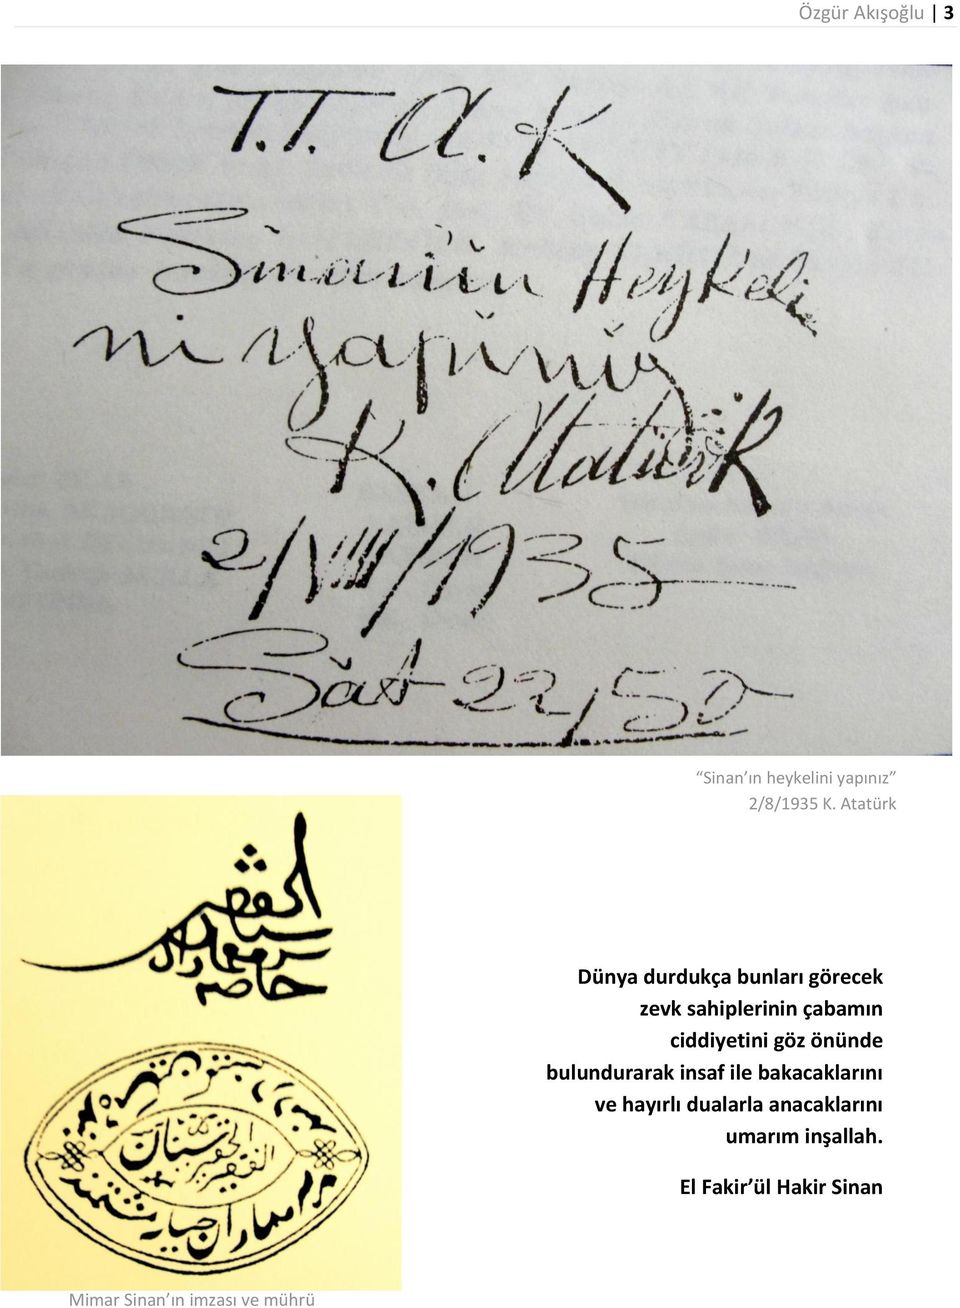 Özgür Akışoğlu | 3
T.T.A.K
Sinanın Heykeli
ni yapınız
K. Atatürk
2/VIII/1935
Săat 22,50
“Sinan’ın heykelini yapınız”
2/8/1935 K. Atatürk
الفقير
سنان
سرمعماران
خاصه
Dünya durdukça bunları görecek
zevk sahiplerinin çabamın
ciddiyetini göz önünde
bulundurarak insaf ile bakacaklarını
ve hayırlı dualarla anacaklarını
umarım inşallah.
El Fakir’ül Hakir Sinan
الفقير الحقير سنان
Mimar Sinan’ın imzası ve mührü